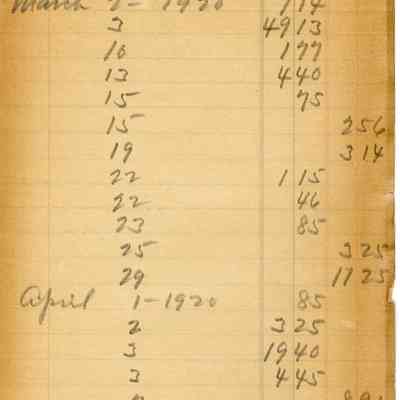 March 2- 1920
3 4913
10 177
13 440
15 75
15 256
19 314
22 115
22 46
23 85
25 325
29 1725
April 1-1920 85
2 325
3 1940
3 445